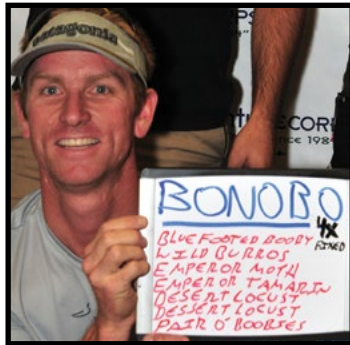 patagonia
ECOR
SINCE 198
BONOBO
4X
FIXED
BLUE FOOTED BOOBY
WILD BURROS
EMPEROR MOTH
EMPEROR TAMARIN
DESERT LOCUST
DESSERT LOCUST
PAIR O' BOOBIES